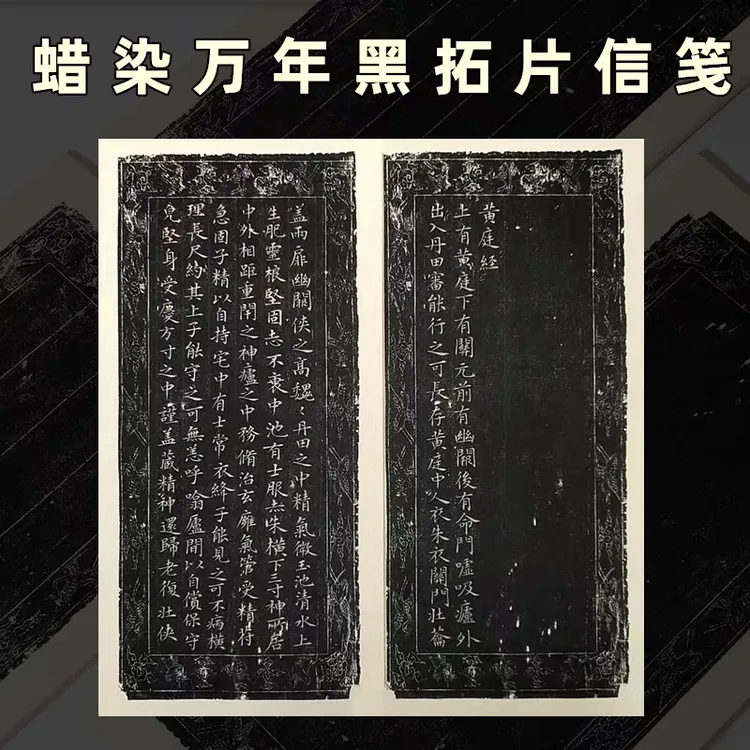 蜡染万年黑拓片信笺
黄庭経
上有黄庭下有關元前有幽闕後有命門噓吸廬外
出入丹田審能行之可長存黄庭中人衣朱衣關門壮蘥
盖兩扉幽闕俠之髙魏〻丹田之中精氣微玉池清水上
生肥靈根堅固志不衰中池有士服赤朱橫下三寸神所居
中外相距重閇之神廬之中務脩治玄廱氣管受精符
急固子精以自持宅中有士常衣絳子能見之可不病橫
理長尺約其上子能守之可無恙呼噏廬間以自償保守
皃堅身受慶方寸之中謹盖藏精神還歸老復壮俠